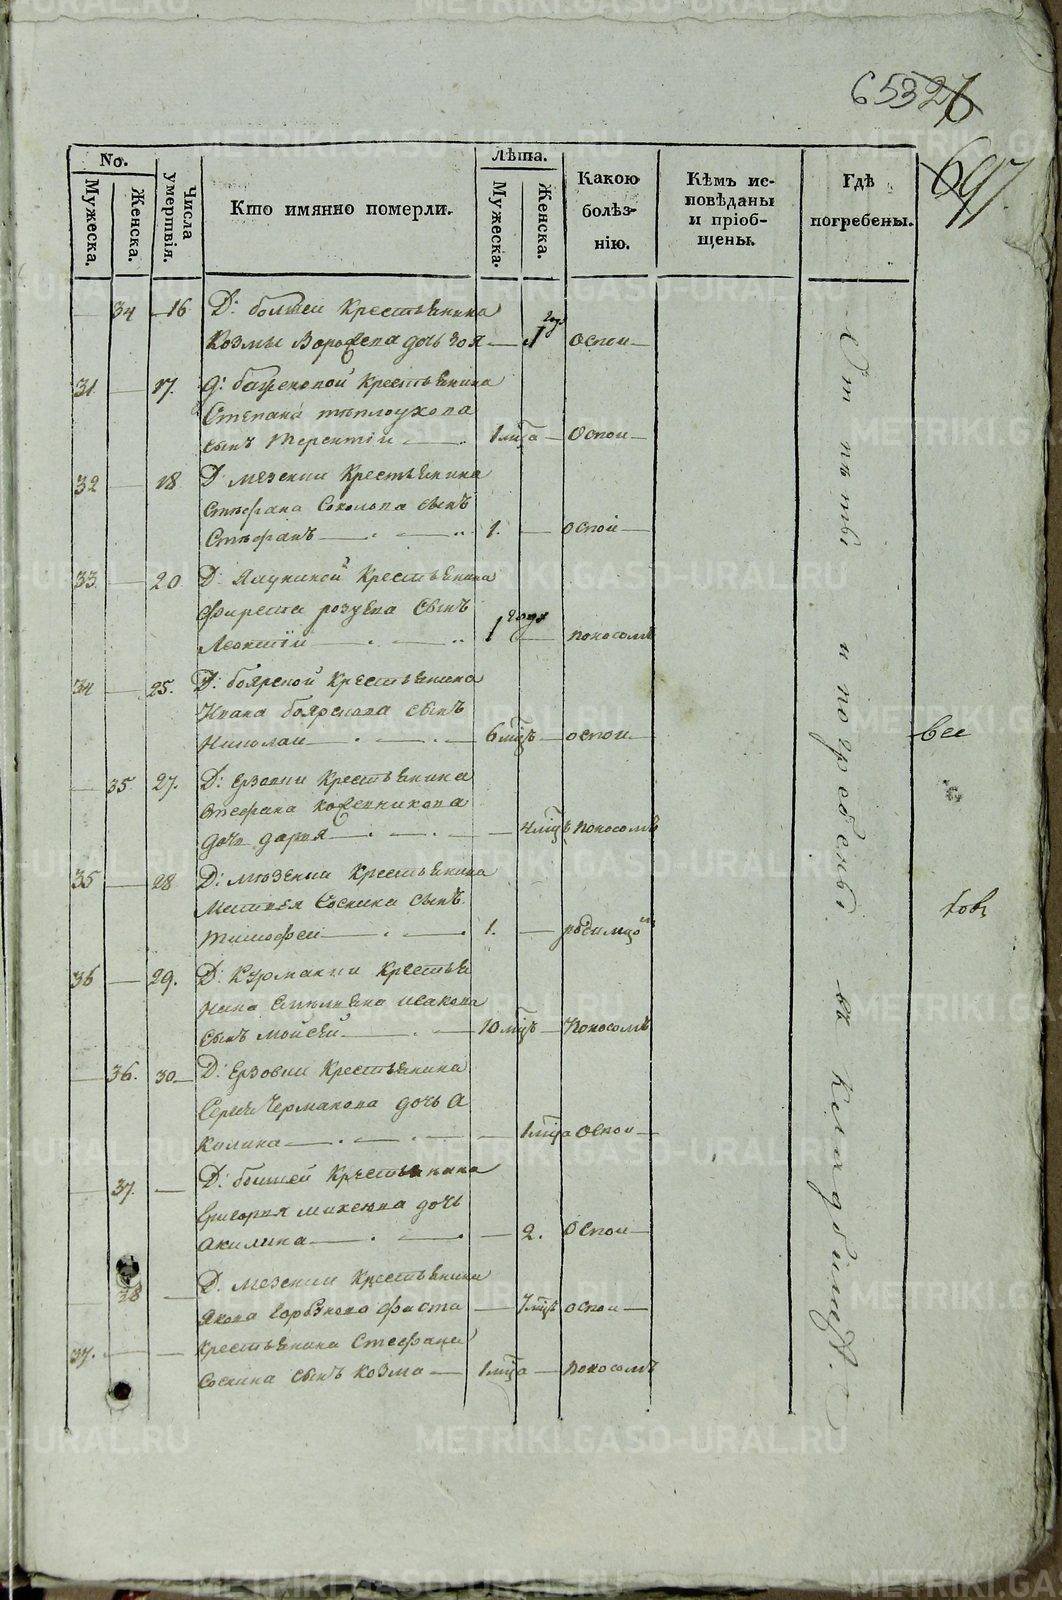 65326
697.
No.
Мужеска.
Женска.
Числа умертвія.
Кто имянно померли.
Лѣта.
Мужеска.
Женска.
Какою болѣз-нію.
Кѣмъ ис-повѣданы и пріоб-щены.
Гдѣ погребены.
34 16 Д: болшей Крестьянина
Козмы дочь Зоя 1 годъ оспой
31 17. Д: Крестьянина
Степана теплоухова
сынъ Терентій 1 мца Оспой
32 18 Д: мезеней Крестьянина
Стефана Соколова сынъ
Стефанъ 1. оспой
33 20 Д: Ялуниной Крестьянина
розуева сынъ
Леонтій 1 года поносомъ
34 25. Д: боярской Крестьянина
Ивана боярскова сынъ
Николай 6 мцъ оспой
35 27. Д: Ерзовки Крестьянина
Стефана кожевникова
дочь дарья 4 мцъ поносомъ
35 28 Д: мезеней Крестьянина
Матвея Соснина сынъ
Тимофей 1. родимцомъ
36 29. Д: Курманки Крестья
нина Емельяна исакова
сынъ мойсей 10 мцъ поносомъ
36. 30 Д: Ерзовки Крестьянина
Сергея Чермакова дочь А
килина 1 мца Оспой
37. Д: болшей Крестьянина
Григорья михеява дочь
акилина 2. Оспой
38 Д: мезеней Крестьянина
Якова Горбунова 7 мцъ оспой
37. Крестьянина Стефана
Соснина сынъ козма 1 мца поносомъ
Отпеты и погребены въ кладбище.
все